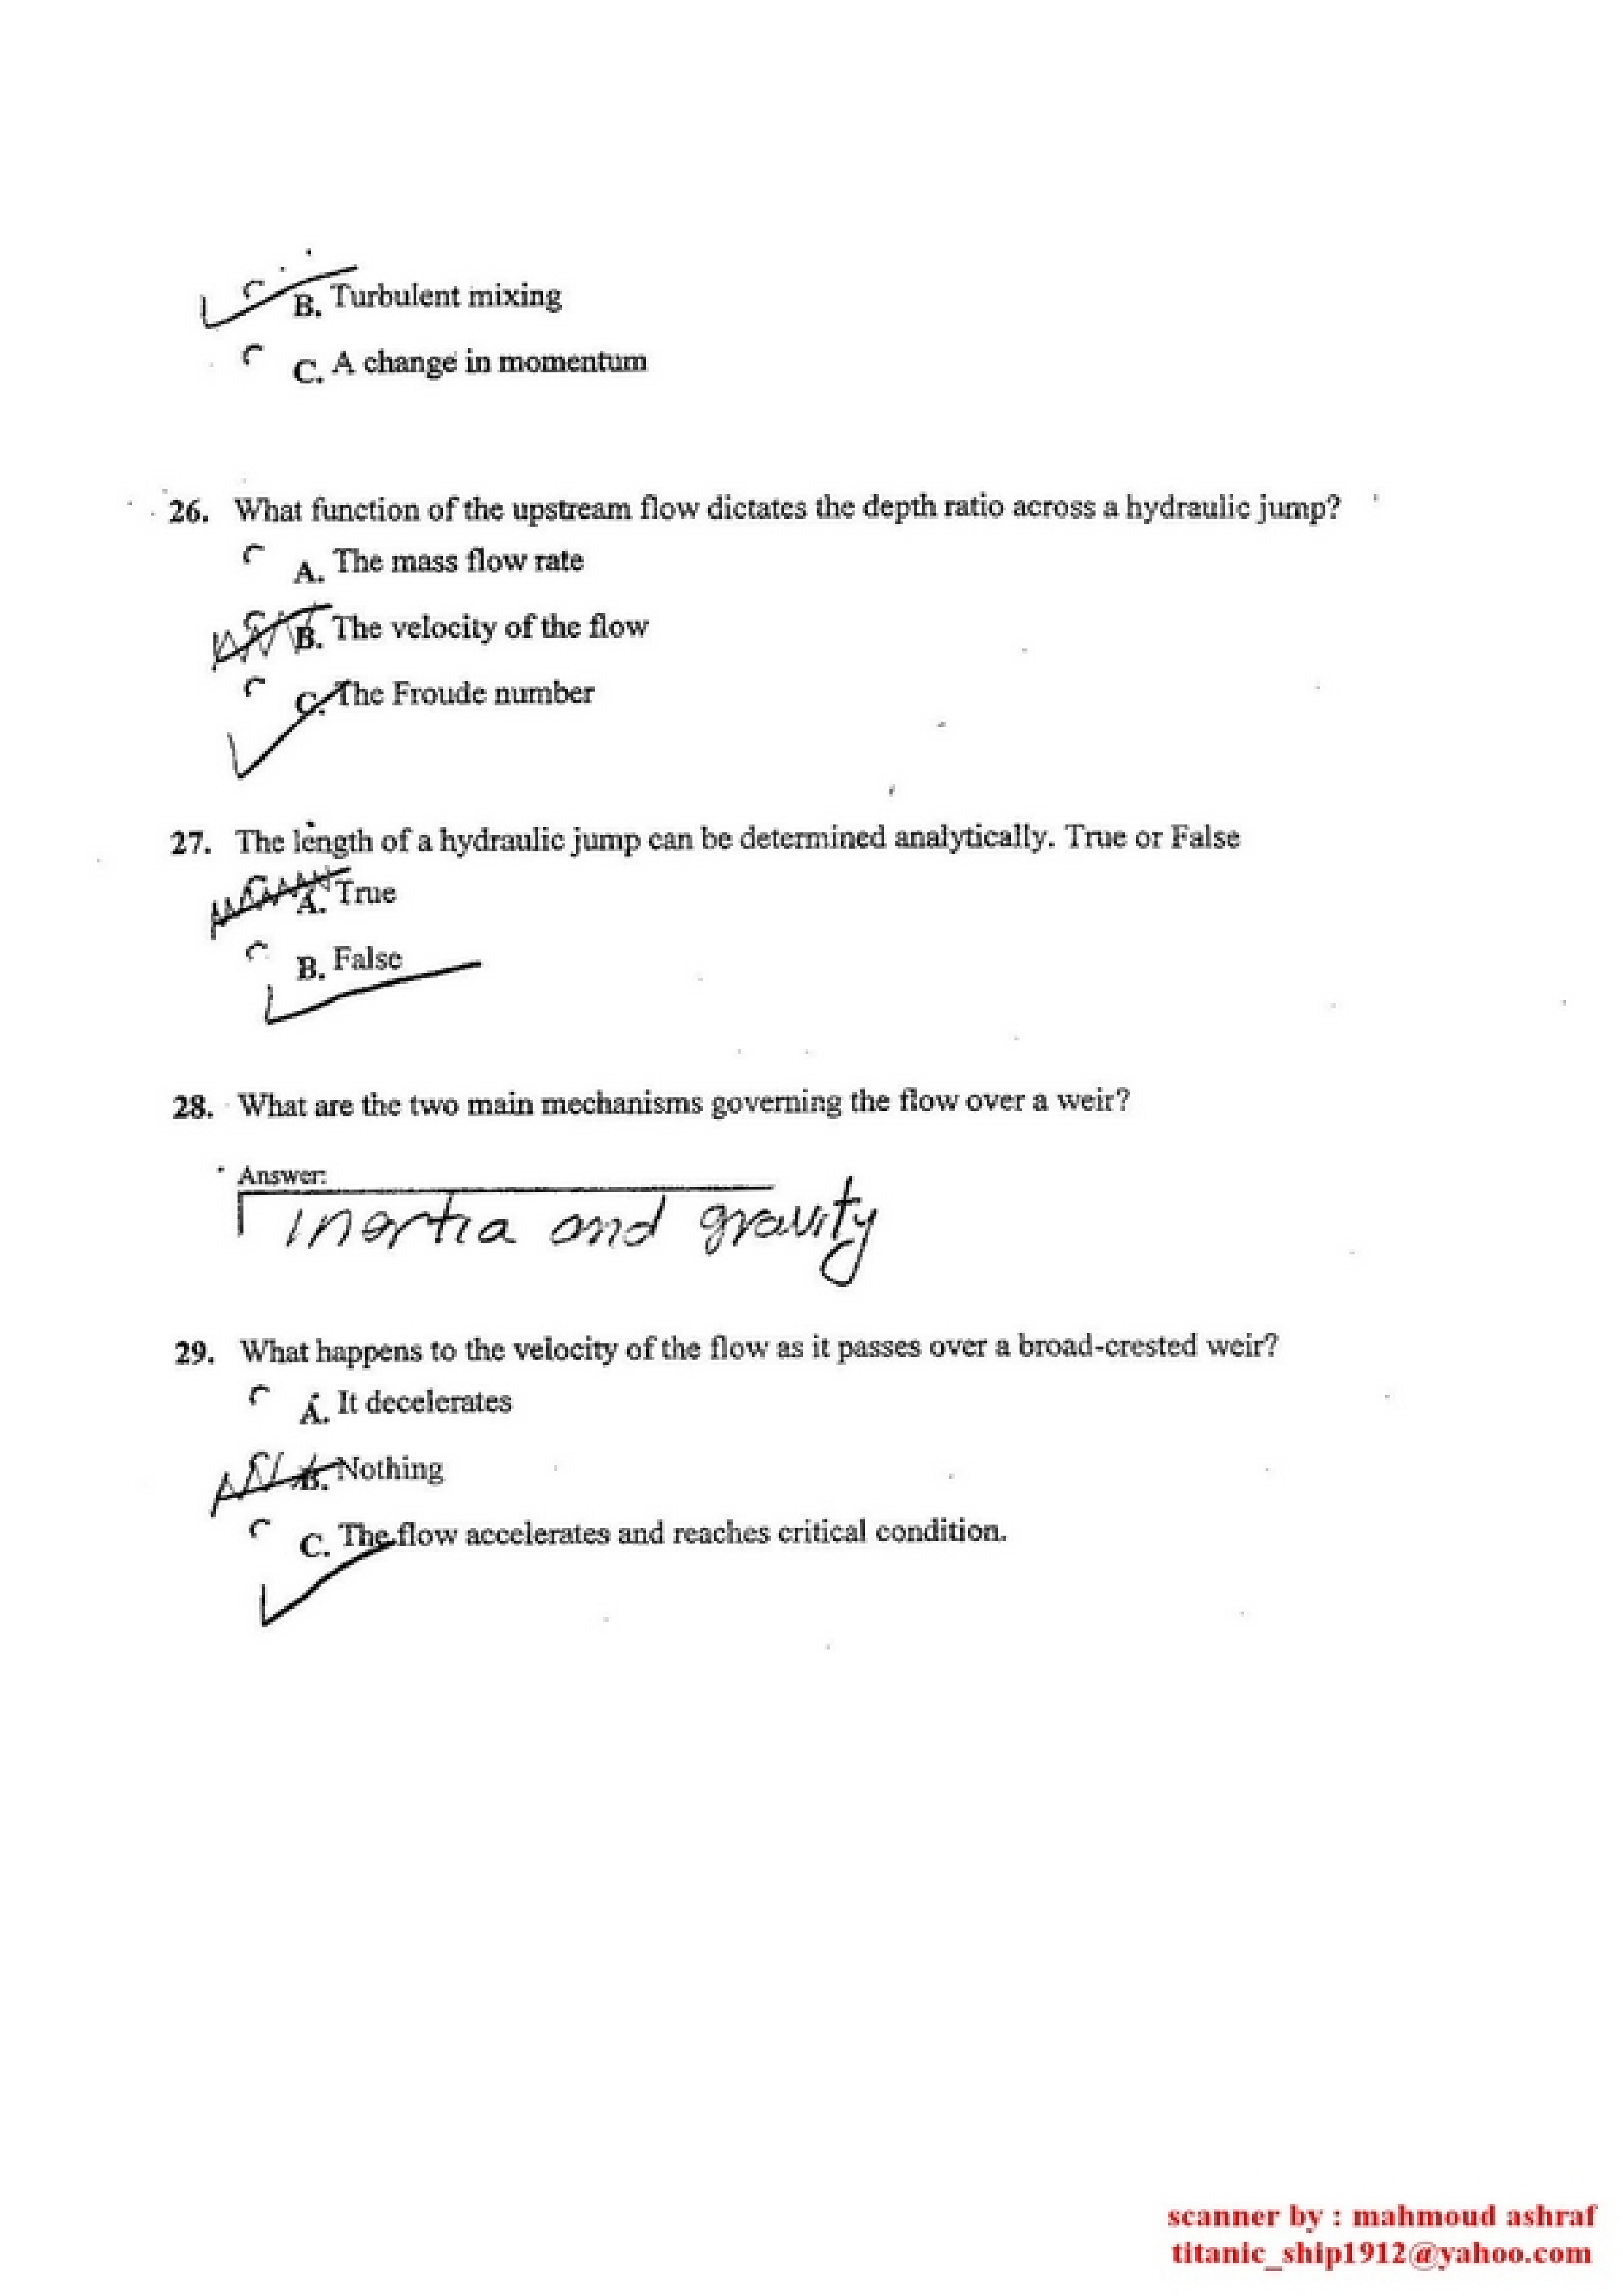 B. Turbulent mixing
C. A change in momentum
26. What function of the upstream flow dictates the depth ratio across a hydraulic jump?
A. The mass flow rate
B. The velocity of the flow
C. The Froude number
27. The length of a hydraulic jump can be determined analytically. True or False
A. True
B. False
28. What are the two main mechanisms governing the flow over a weir?
Answer:
inertia and gravity
29. What happens to the velocity of the flow as it passes over a broad-crested weir?
A. It decelerates
B. Nothing
C. The flow accelerates and reaches critical condition.
scanner by : mahmoud ashraf
titanic_ship1912@yahoo.com